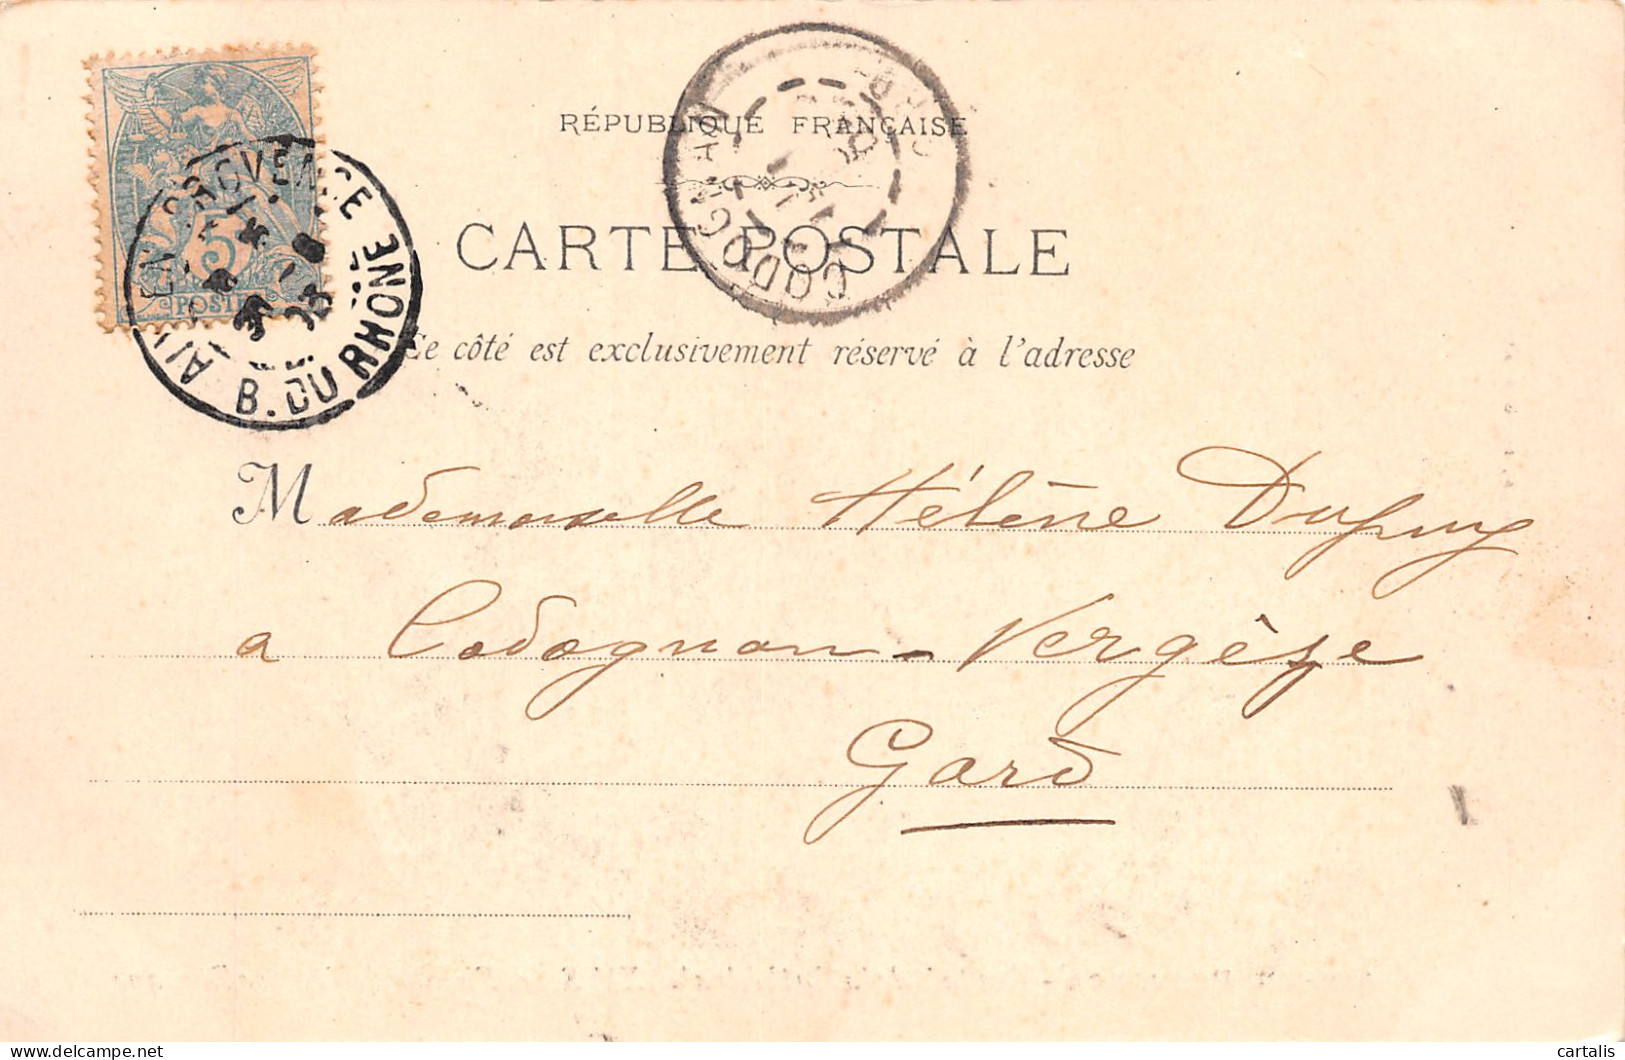 RÉPUBLIQUE FRANÇAISE
CARTE POSTALE
Ce côté est exclusivement réservé à l'adresse
5
POSTES
AIX-EN-PROVENCE
B. DU RHÔNE
CODOGNAN
GARD
Mademoiselle Hélène Dupuy
a Codognan-Vergèze
Gard
delcampe.net
cartalis